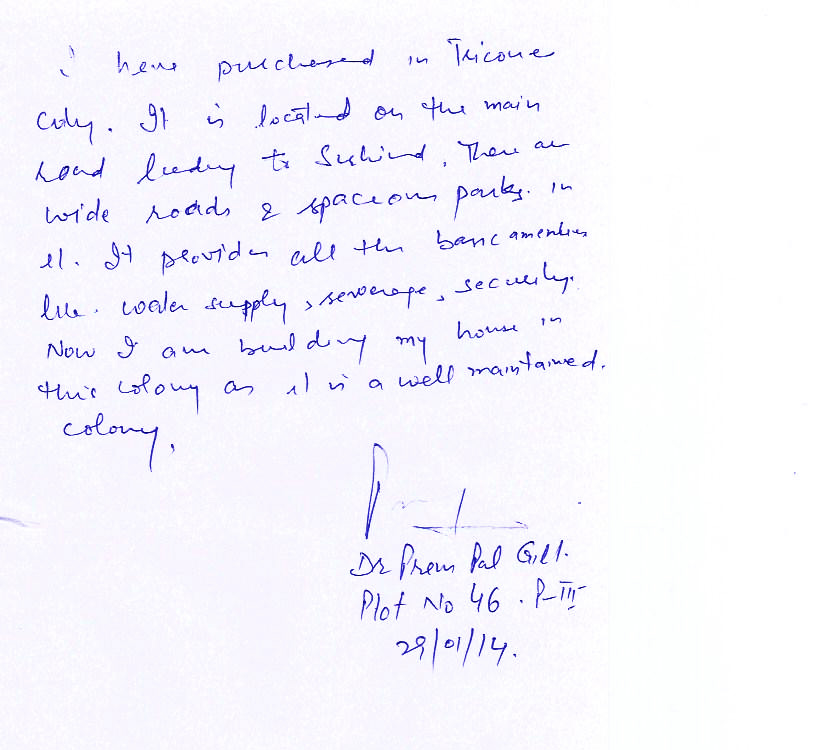 I have purchased in Tricone
City. It is located on the main
road leading to Sirhind, There are
wide roads & spacious parks. in
it. It provides all the basic amenities
like. water supply, sewerage, security.
Now I am building my house in
this colony as it is a well maintained.
colony.
Dr Prem Pal Gill.
Plot No 46. P-III
29/01/14.